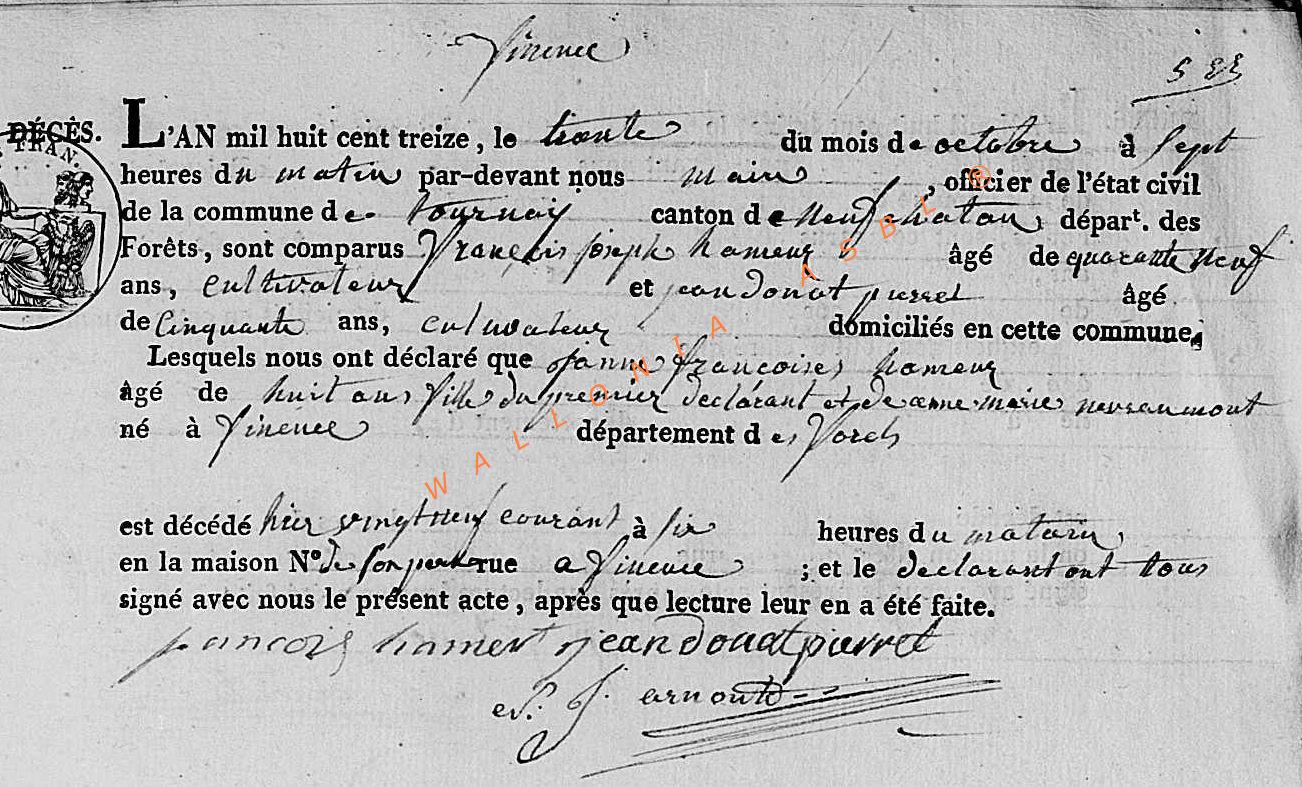 Finence
522
DÉCÈS.
L'AN mil huit cent treize, le trente du mois de octobre à Sept
TRAN.
heures du matin par-devant nous maire , officier de l'état civil
de la commune de tournay canton de Neufchatau, départ. des
Forêts, sont comparus françois joseph hameur âgé de quarante neuf
ans, cultivateur et jean donat pierret âgé
de Cinquante ans, culivateur domiciliés en cette commune,
Lesquels nous ont déclaré que françoises hameur
âgé de huit ans fille du premier declarant et de anne-marie
né à Finence département des Forets
est décédé hier vingtneuf courant à Six heures du matain,
en la maison N° de son pere rue a Finence ; et le declarant ont tous
signé avec nous le présent acte, après que lecture leur en a été faite.
jean donat pierret
arnould
WALLONIA ASBL ®